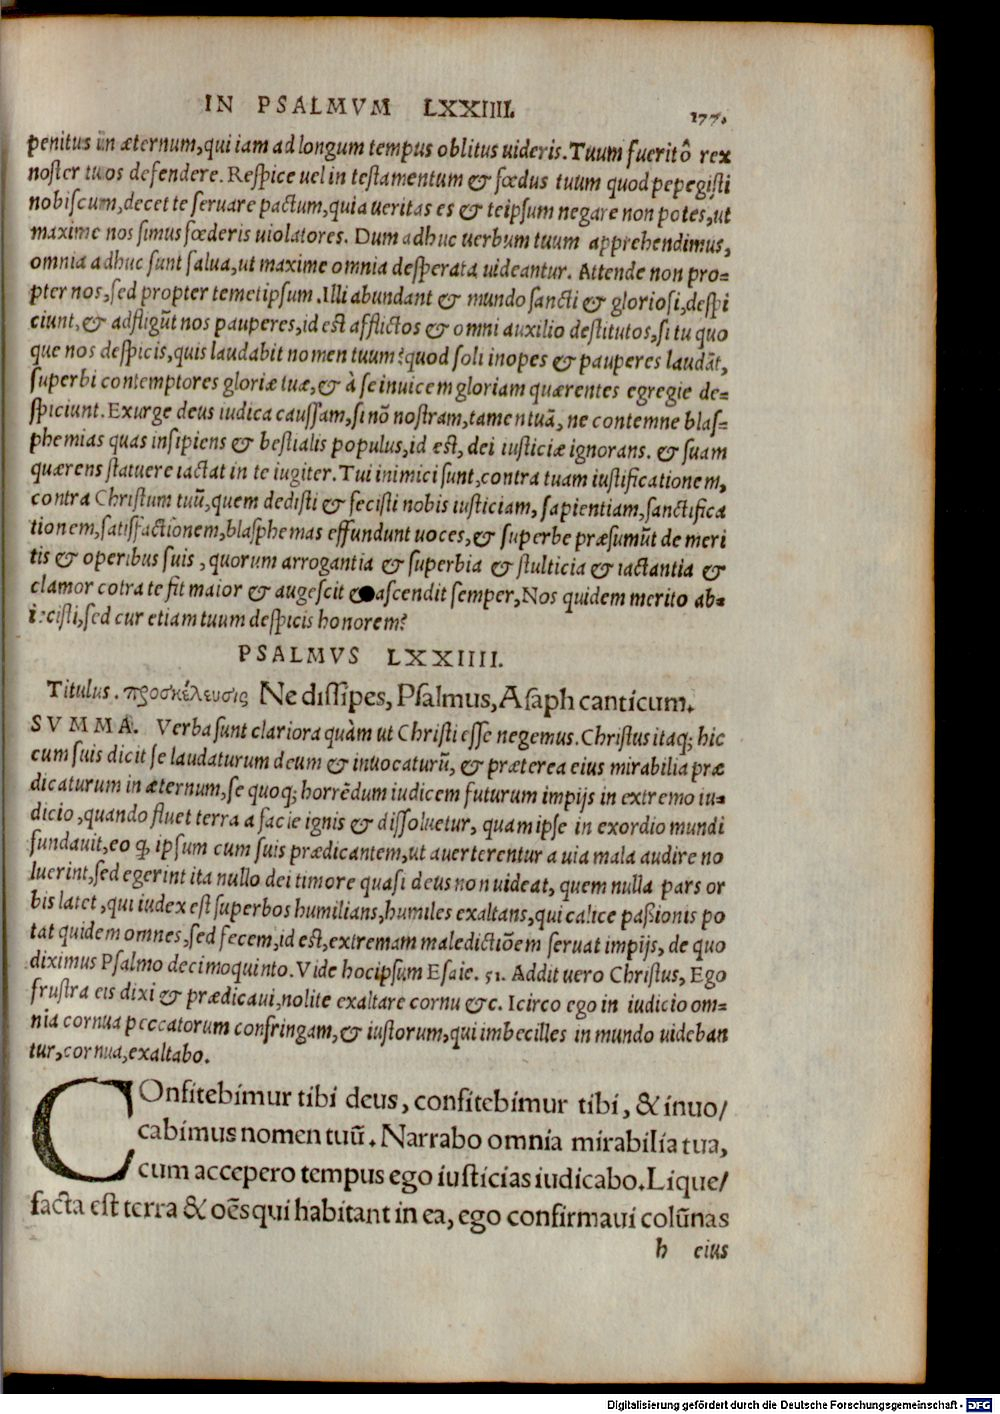 IN PSALMVM LXXIIII. 177.
penitus in æternum, qui iam ad longum tempus oblitus uideris. Tuum fuerit ô rex
noster tuos defendere. Respice uel in testamentum & fœdus tuum quod pepegisti
nobiscum, decet te seruare pactum, quia ueritas es & teipsum negare non potes, ut
maxime nos simus fœderis uiolatores. Dum adhuc uerbum tuum apprehendimus,
omnia adhuc sunt salua, ut maxime omnia desperata uideantur. Attende non pro-
pter nos, sed propter temetipsum. Illi abundant & mundo sancti & gloriosi, despi
ciunt, & adfligūt nos pauperes, id est afflictos & omni auxilio destitutos, si tu quo
que nos despicis, quis laudabit nomen tuum? quod soli inopes & pauperes laudāt,
superbi contemptores gloriæ tuæ, & à se inuicem gloriam quærentes egregie de-
spiciunt. Exurge deus iudica caussam, si nō nostram, tamen tuā, ne contemne blas-
phemias quas insipiens & bestialis populus, id est, dei iusticiæ ignorans. & suam
quærens statuere iactat in te iugiter. Tui inimici sunt, contra tuam iustificationem,
contra Christum tuū, quem dedisti & fecisti nobis iusticiam, sapientiam, sanctifica
tionem, satisfactionem, blasphemas effundunt uoces, & superbe præsumūt de meri
tis & operibus suis, quorum arrogantia & superbia & stulticia & iactantia &
clamor cotra te fit maior & augescit & ascendit semper, Nos quidem merito ab-
iecisti, sed cur etiam tuum despicis honorem?
PSALMVS LXXIIII.
Titulus. προσκέλευσις Ne dissipes, Psalmus, Asaph canticum.
SVMMA. Verba sunt clariora quàm ut Christi esse negemus. Christus itaq; hic
cum suis dicit se laudaturum deum & inuocaturū, & præterea eius mirabilia præ
dicaturum in æternum, se quoq; horrēdum iudicem futurum impijs in extremo iu-
dicio, quando fluet terra a facie ignis & dissoluetur, quam ipse in exordio mundi
fundauit, eo ꝙ ipsum cum suis prædicantem, ut auerterentur a uia mala audire no
luerint, sed egerint ita nullo dei timore quasi deus non uideat, quem nulla pars or
bis latet, qui iudex est superbos humilians, humiles exaltans, qui calice paßionis po
tat quidem omnes, sed fecem, id est, extremam maledictiōem seruat impijs, de quo
diximus Psalmo decimoquinto. Vide hoc ipsum Esaie. 51. Addit uero Christus, Ego
frustra eis dixi & prædicaui, nolite exaltare cornu &c. Icirco ego in iudicio om-
nia cornua peccatorum confringam, & iustorum, qui imbecilles in mundo uideban
tur, cornua, exaltabo.
COnfitebimur tibi deus, confitebimur tibi, & inuo/
cabimus nomen tuū. Narrabo omnia mirabilia tua,
cum accepero tempus ego iusticias iudicabo. Lique/
facta est terra & oēs qui habitant in ea, ego confirmaui colūnas
h eius
Digitalisierung gefördert durch die Deutsche Forschungsgemeinschaft - DFG